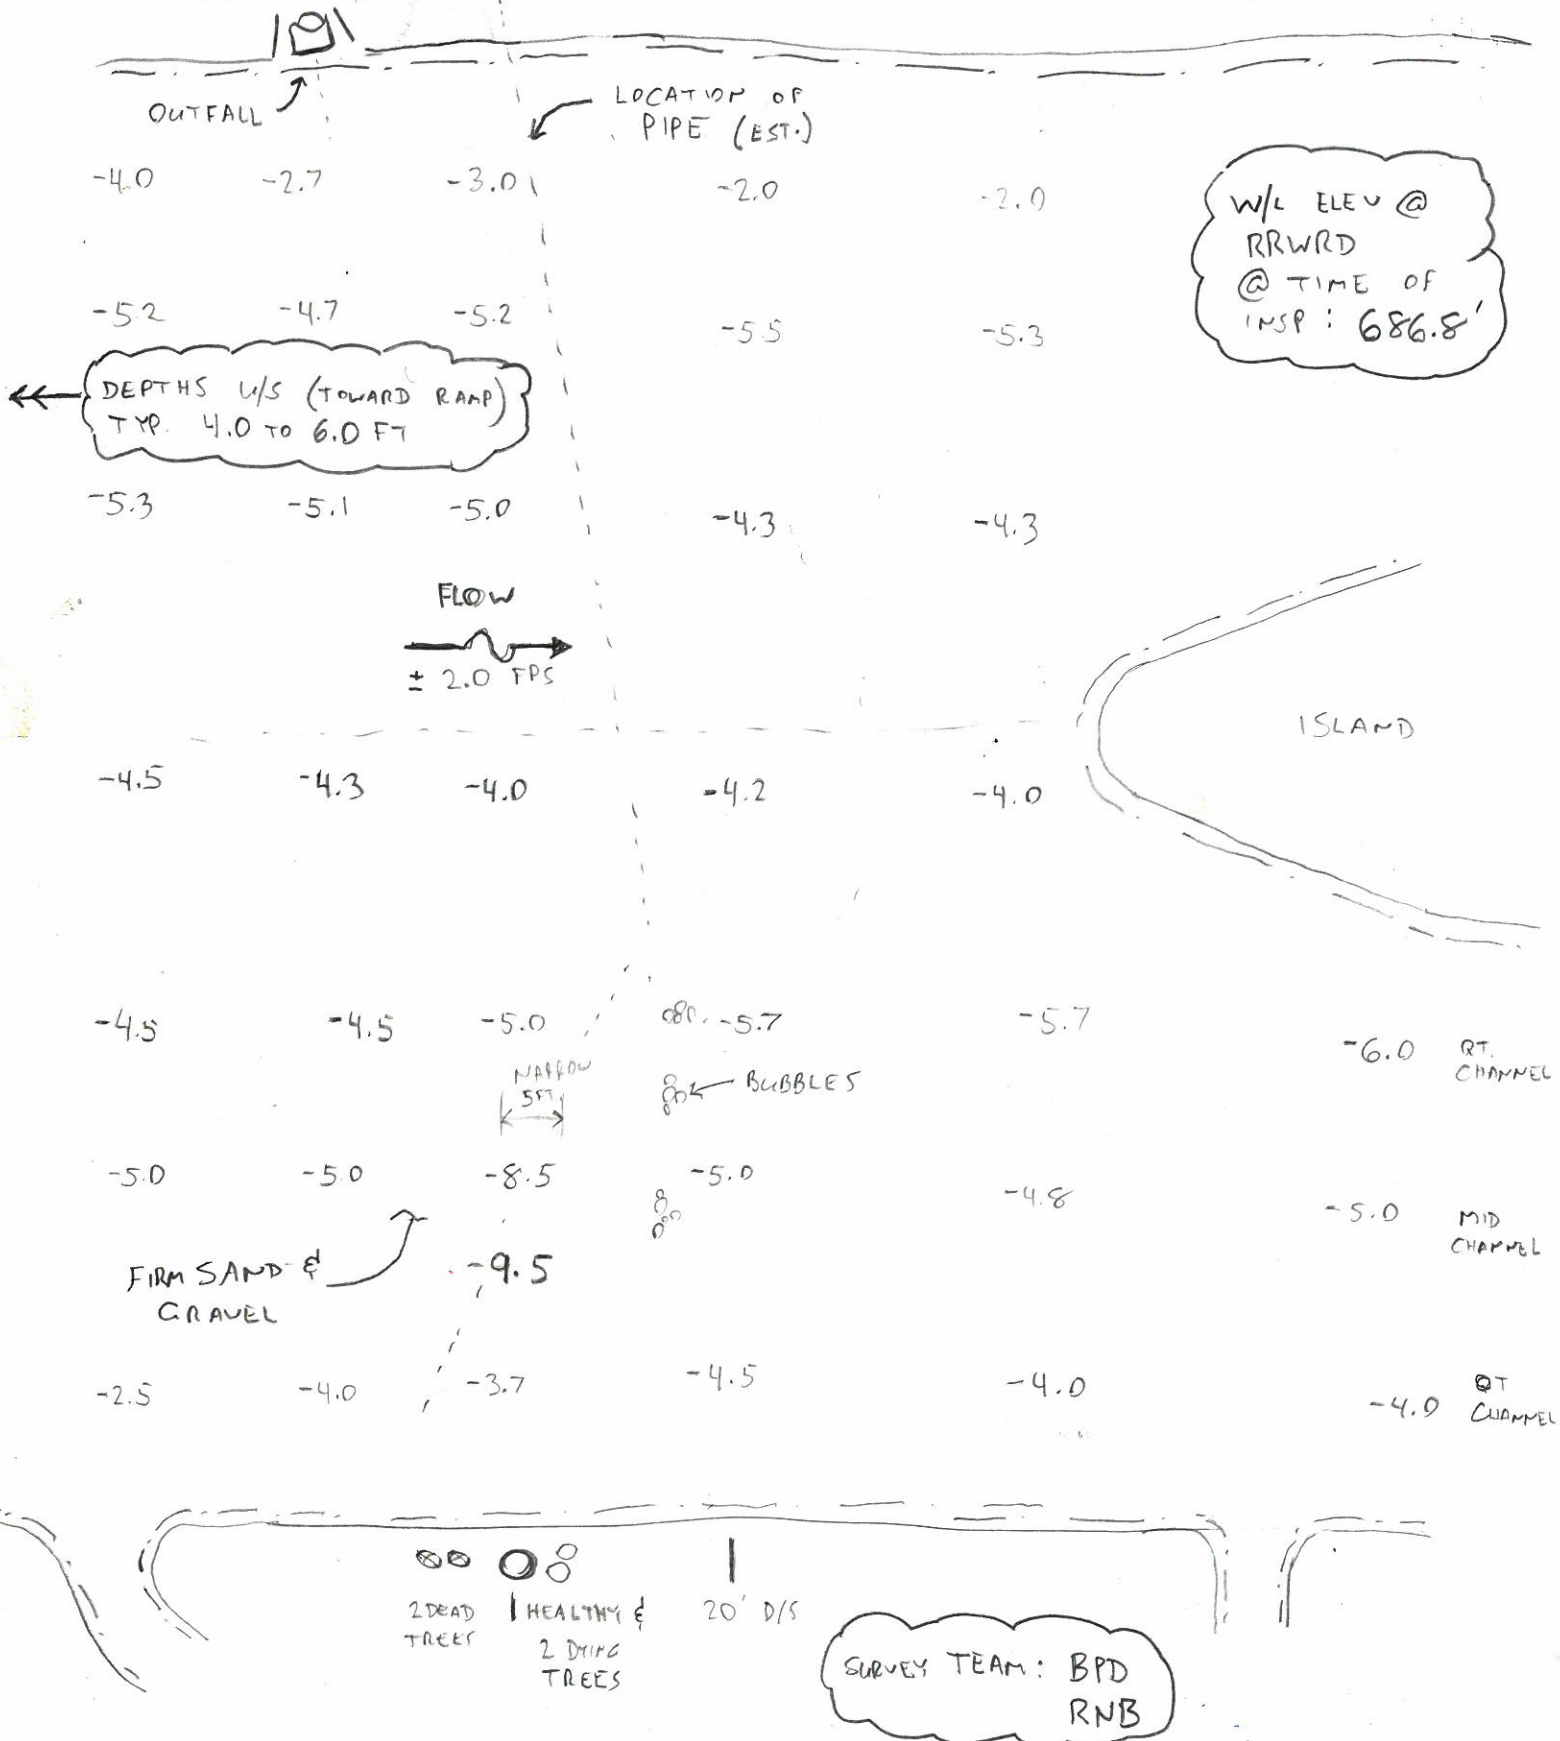 OUTFALL
LOCATION OF
PIPE (EST.)
-4.0 -2.7 -3.0 -2.0 -2.0
W/L ELEV @
RRWRD
@ TIME OF
INSP: 686.8'
-5.2 -4.7 -5.2 -5.5 -5.3
DEPTHS U/S (TOWARD RAMP)
TYP. 4.0 TO 6.0 FT
-5.3 -5.1 -5.0 -4.3 -4.3
FLOW
± 2.0 FPS
ISLAND
-4.5 -4.3 -4.0 -4.2 -4.0
-4.5 -4.5 -5.0 -5.7 -5.7 -6.0 QT.
CHANNEL
NARROW
5FT
BUBBLES
-5.0 -5.0 -8.5 -5.0 -4.8 -5.0 MID
CHANNEL
FIRM SAND &
GRAVEL
-9.5
-2.5 -4.0 -3.7 -4.5 -4.0 -4.0 QT
CHANNEL
2 DEAD
TREES
1 HEALTHY &
2 DYING
TREES
20' D/S
SURVEY TEAM: BPD
RNB